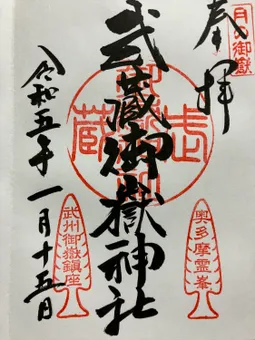 月の御嶽
奉拝
武蔵御嶽神社
令和五年一月十五日
奥多摩霊峯
武州御嶽鎮座
武蔵